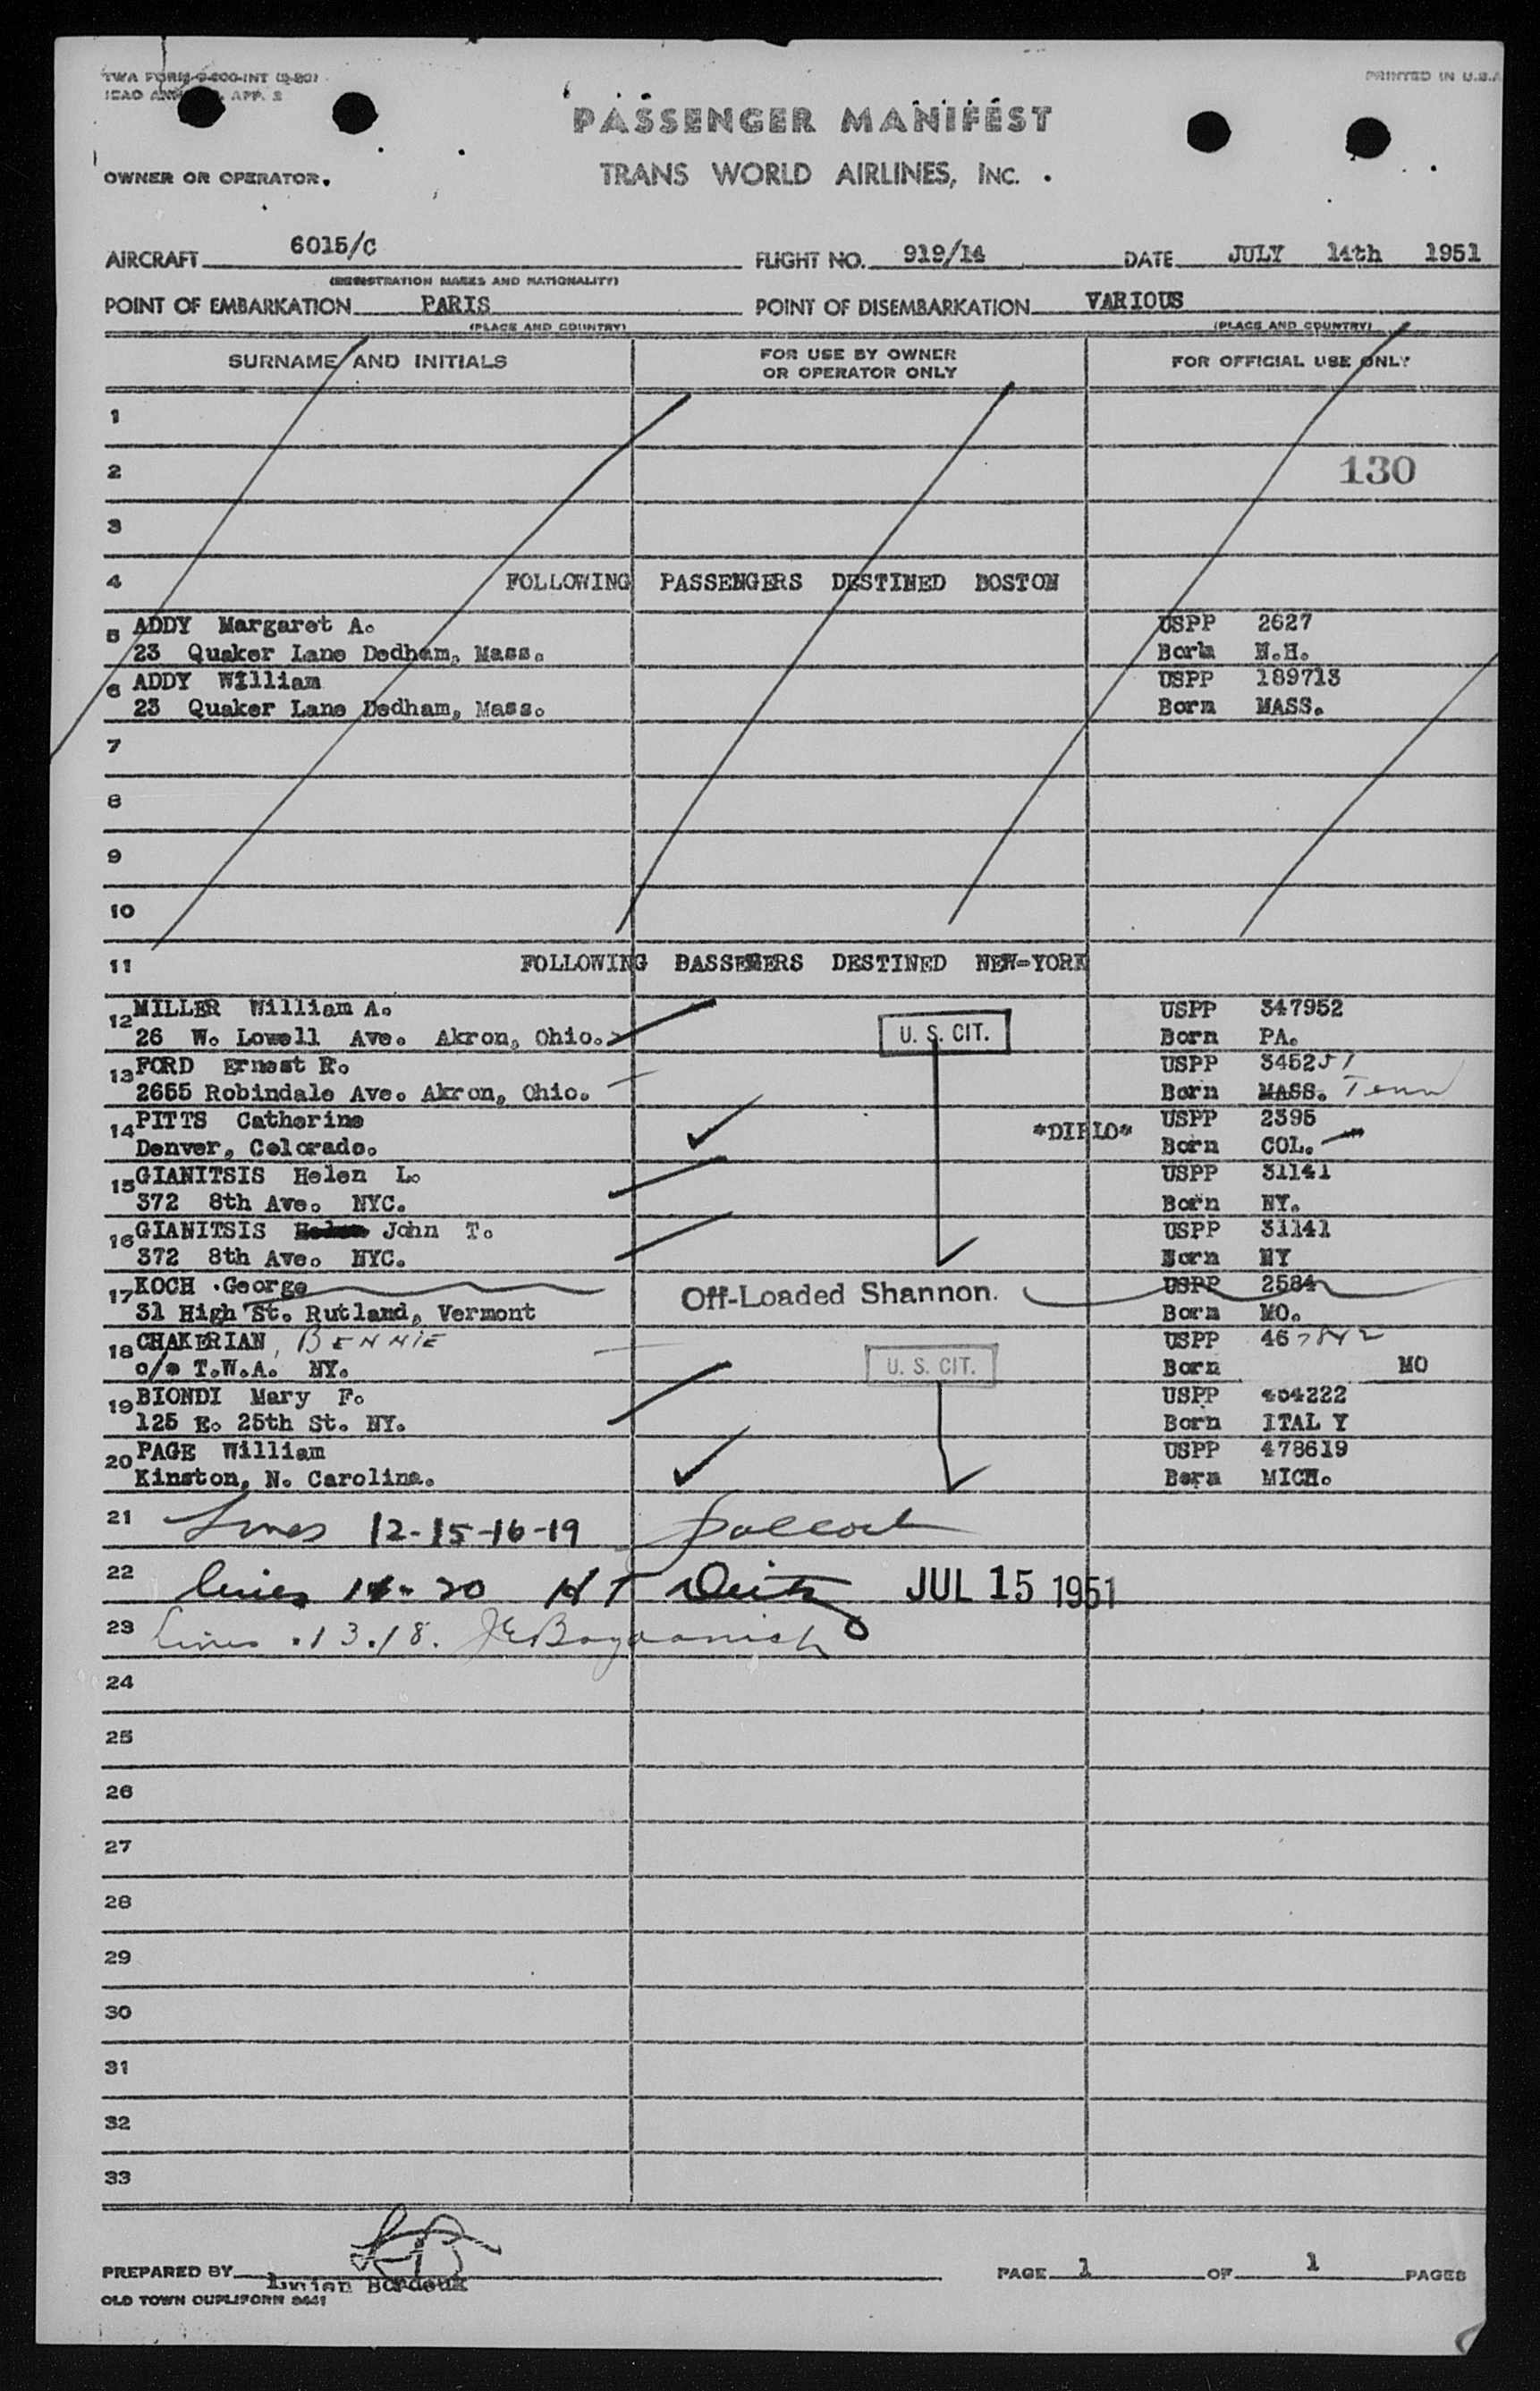 TWA FORM
PRINTED IN U.S.A
ICAO APP. 2
PASSENGER MANIFEST
OWNER OR OPERATOR.
TRANS WORLD AIRLINES, INC.
AIRCRAFT 6015/C FLIGHT NO. 919/14 DATE JULY 14th 1951
(REGISTRATION MARKS AND NATIONALITY)
POINT OF EMBARKATION PARIS POINT OF DISEMBARKATION VARIOUS
(PLACE AND COUNTRY) (PLACE AND COUNTRY)
SURNAME AND INITIALS FOR USE BY OWNER OR OPERATOR ONLY FOR OFFICIAL USE ONLY
1
2 130
3
4 FOLLOWING PASSENGERS DESTINED BOSTON
5 ADDY Margaret A. USPP 2627
23 Quaker Lane Dedham, Mass. Born N.H.
6 ADDY William USPP 189713
23 Quaker Lane Dedham, Mass. Born MASS.
7
8
9
10
11 FOLLOWING DESTINED NEW-YORK
12 MILLER William A. USPP 347952
26 W. Lowell Ave. Akron, Ohio. U. S. CIT. Born PA.
13 FORD Ernest R. USPP 345251
2655 Robindale Ave. Akron, Ohio. Born MASS. Tenn
14 PITTS Catherine *DIPLO* USPP 2395
Denver, Colorado. Born COL.
15 GIANITSIS Helen L. USPP 31141
372 8th Ave. NYC. Born NY.
16 GIANITSIS John T. USPP 31141
372 8th Ave. NYC. Born NY
17 KOCH George Off-Loaded Shannon. USPP 2584
31 High St. Rutland, Vermont Born MO.
18 CHAKERIAN, BENNIE USPP 467842
c/o T.W.A. NY. U. S. CIT. Born MO
19 BIONDI Mary F. USPP 454222
125 E. 25th St. NY. Born ITAL Y
20 PAGE William USPP 478619
Kinston, N. Carolina. Born MICH.
21 Lines 12-15-16-19
22 lines 14-20 JUL 15 1951
23 Lines 13.18.
24
25
26
27
28
29
30
31
32
33
PREPARED BY PAGE 1 OF 1 PAGES
Lucien Bordeux
OLD TOWN DUPLIFORM